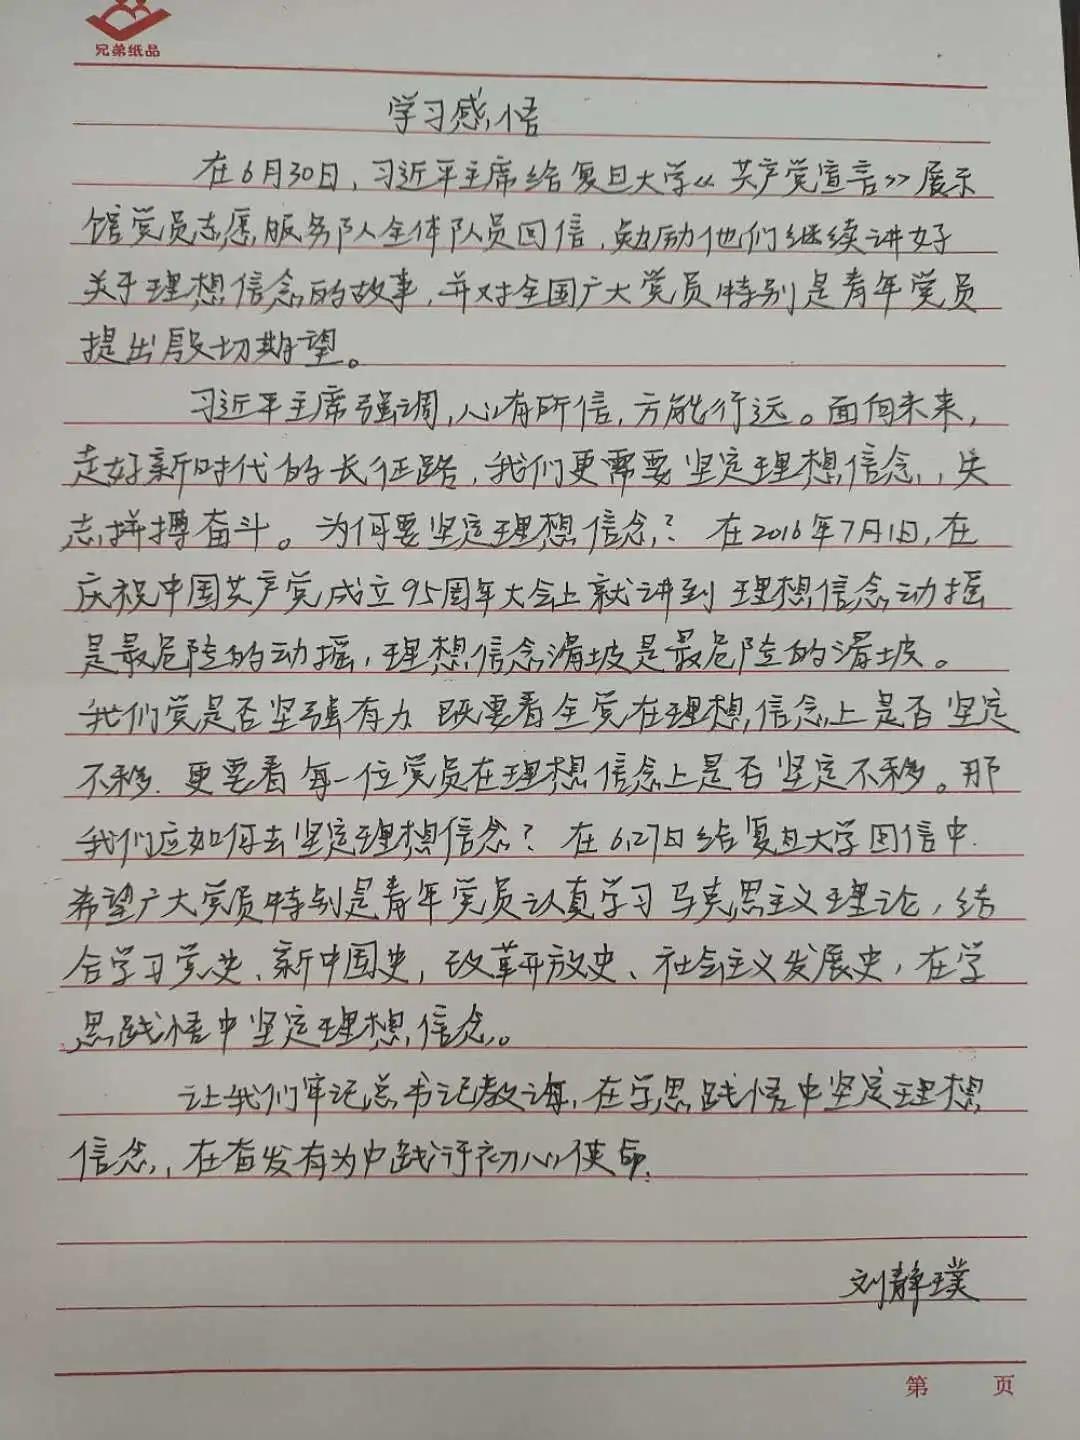 兄弟纸品
学习感悟
在6月30日，习近平主席给复旦大学《共产党宣言》展示
馆党员志愿服务队全体队员回信，勉励他们继续讲好
关于理想信念的故事，并对全国广大党员特别是青年党员
提出殷切期望。
习近平主席强调，心有所信，方能行远。面向未来，
走好新时代的长征路，我们更需要坚定理想信念，矢
志拼搏奋斗。为何要坚定理想信念？在2016年7月1日，在
庆祝中国共产党成立95周年大会上就讲到理想信念动摇
是最危险的动摇，理想信念滑坡是最危险的滑坡。
我们党是否坚强有力 既要看全党在理想信念上是否坚定
不移.更要看每一位党员在理想信念上是否坚定不移。那
我们应如何去坚定理想信念？在6.27日给复旦大学回信中.
希望广大党员特别是青年党员认真学习马克思主义理论，结
合学习党史、新中国史，改革开放史、社会主义发展史，在学
思践悟中坚定理想信念。
让我们牢记总书记教诲，在学思践悟中坚定理想
信念，在奋发有为中践行初心使命.
刘静璞
第 页